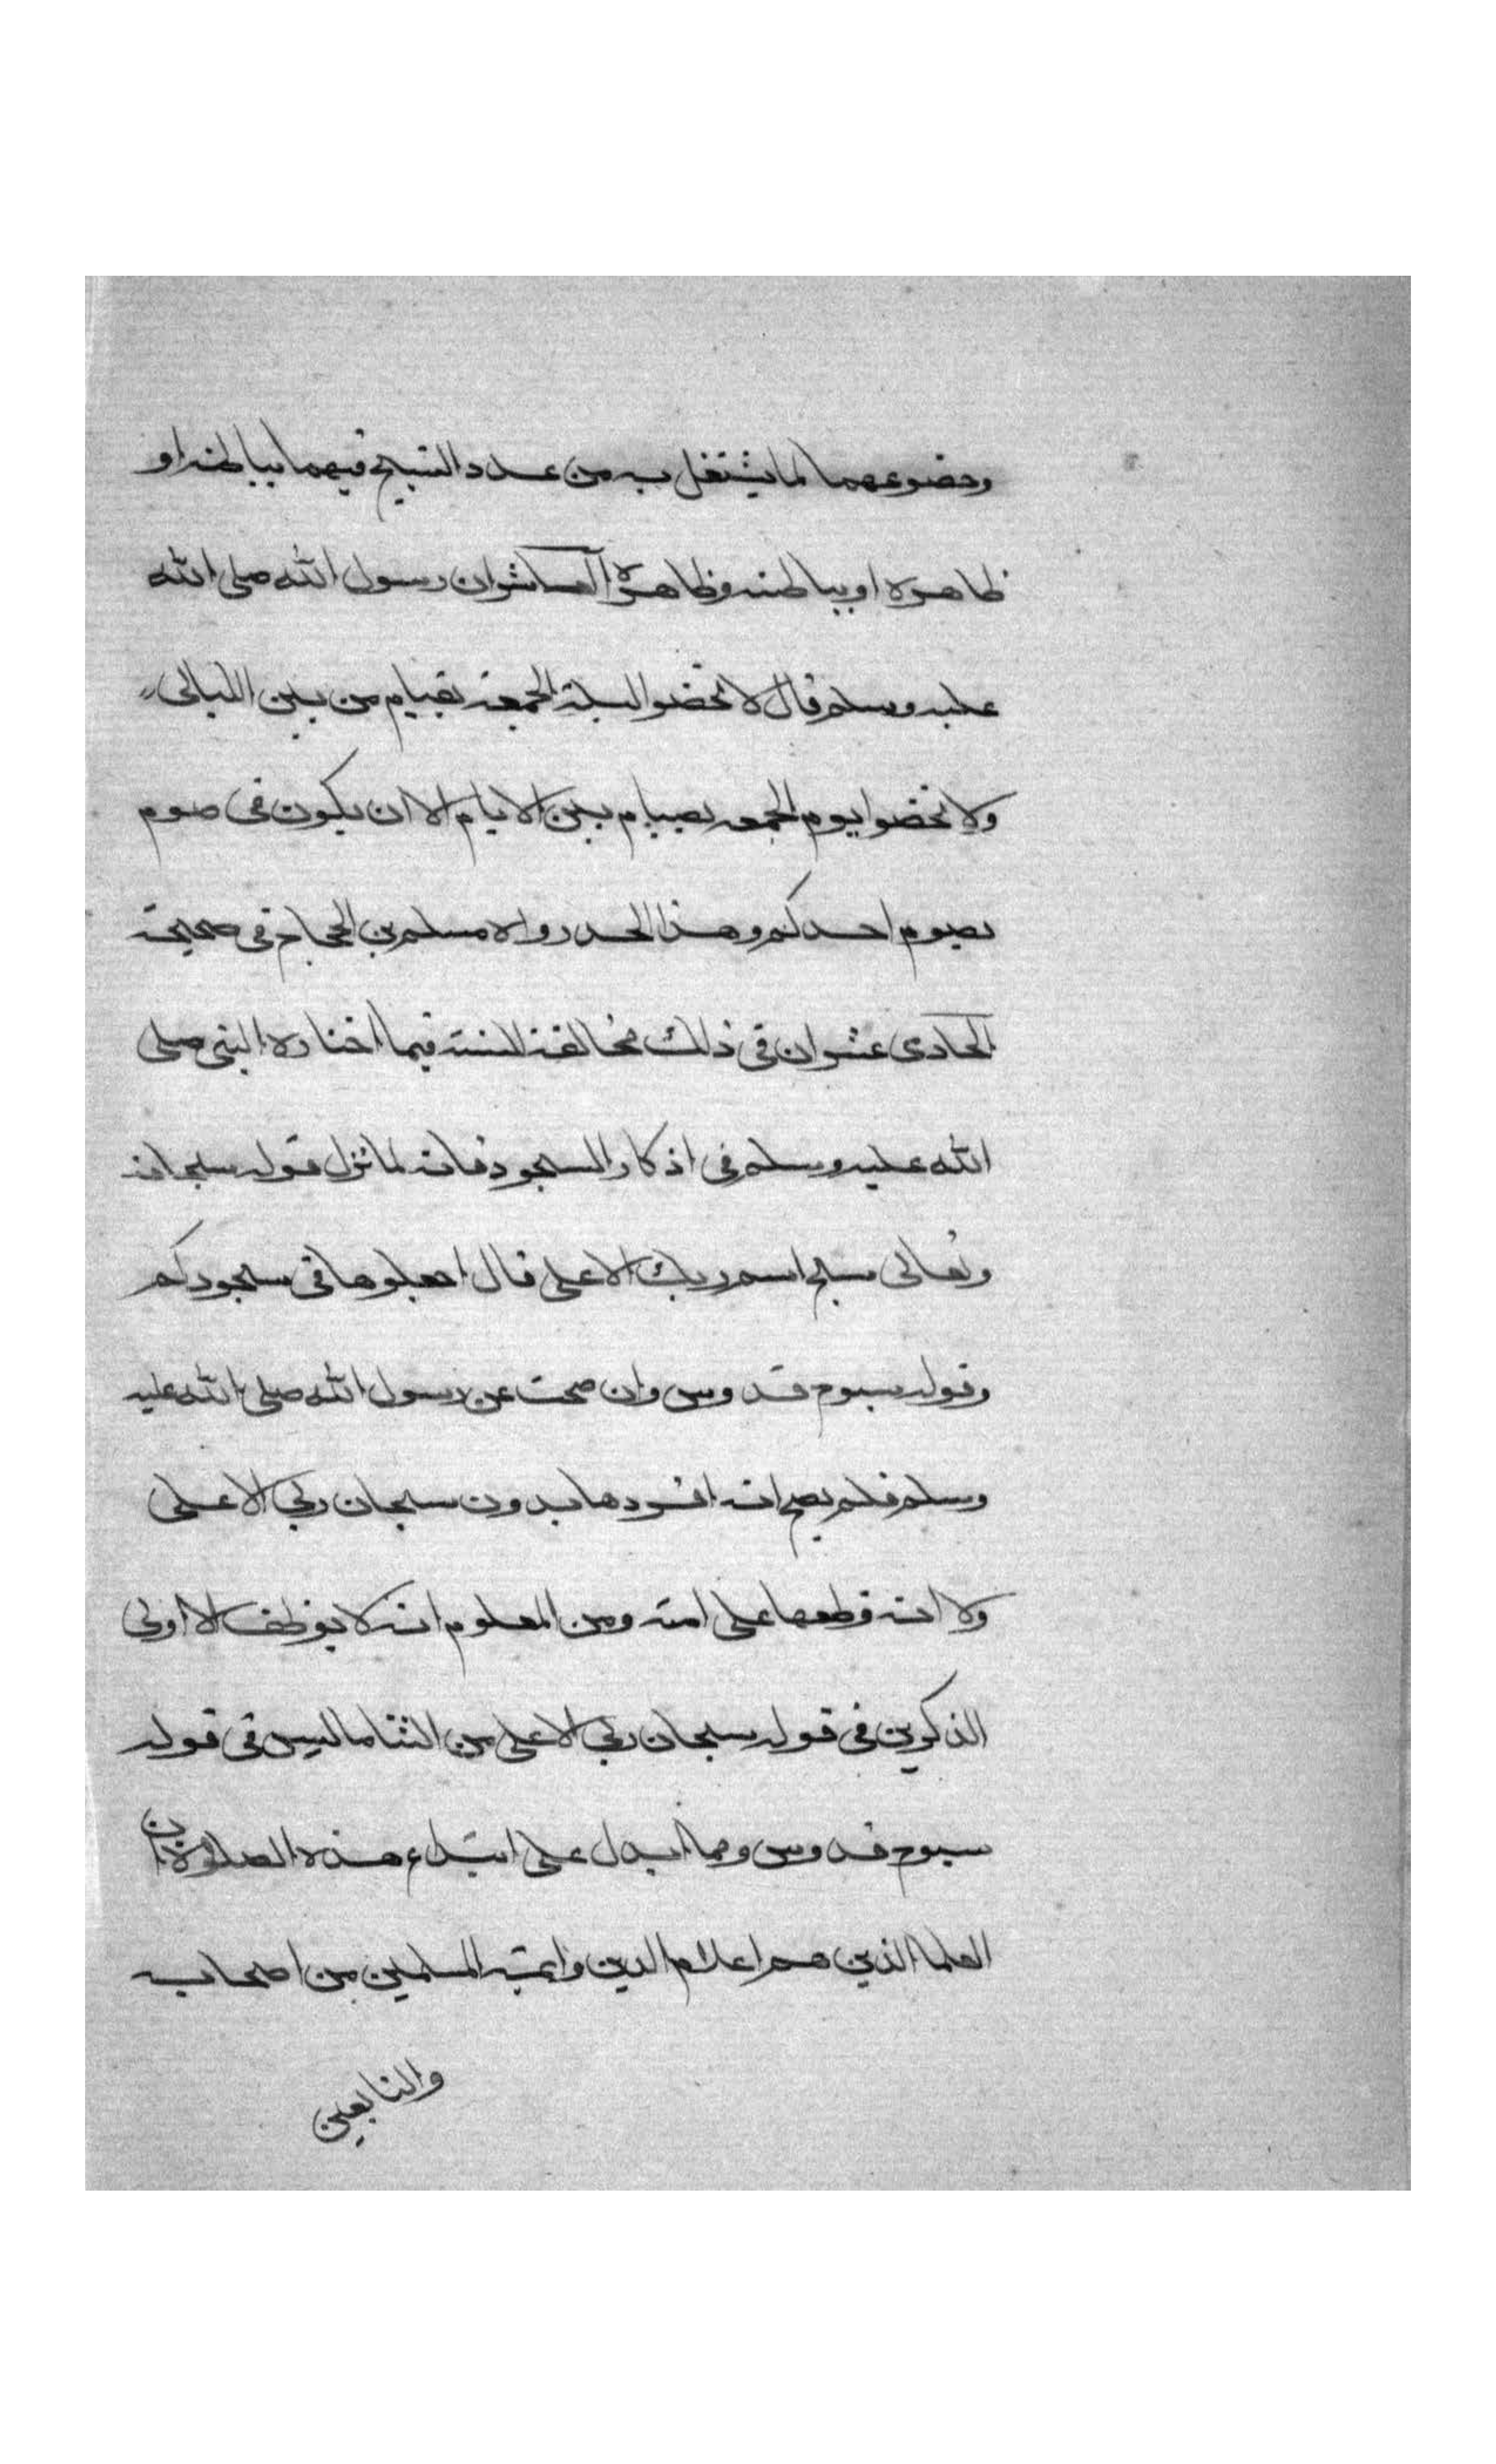 وخضوعهما لما يشتغل به من عدد التسبيح فيهما بباطنه او
ظاهره او بباطنه وظاهره العاشر ان رسول الله صلى الله
عليه وسلم قال لا تخصوا ليلة الجمعة بقيام من بين الليالى
ولا تخصوا يوم الجمعه بصيام بين الايام الا ان يكون فى صوم
يصوم احدكم وهذا الحد رواه مسلم بن الحجاج فى صحيحة
الحادى عشر ان فى ذلك مخالفة للسنة فيما اختاره النبى صلى
الله عليه وسلم فى اذكار السجود فانه لما نزل قوله سبحانه
وتعالى سبح اسم ربك الاعلى قال اجعلوها فى سجودكم
وقوله سبوح قدوس وان صحت عن رسول الله صلى الله عليه
وسلم فلم يصح انه افردها بدون سبحان ربي الاعلى
ولا انه وظفها على امته ومن المعلوم انه لا يوظف الا اولى
الذكرين فى قوله سبحان ربي الاعلى من الثنا ما ليس فى قوله
سبوح قدوس ومما يدل على ابتداع هذه الصلوة ان
العلما الذين هم اعلام الدين وايمة المسلمين من اصحابه
والتابعين